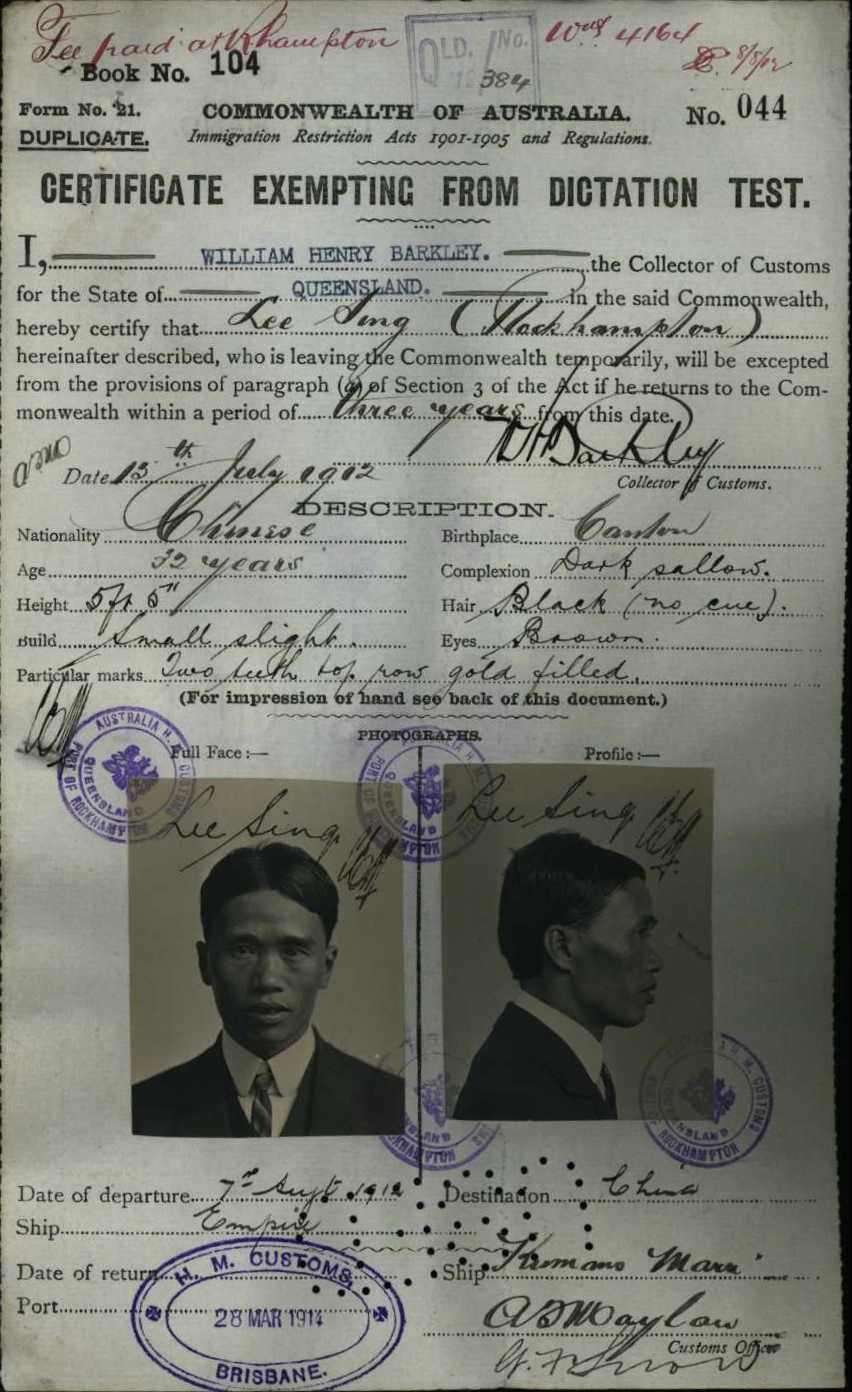 Fee paid at Rhampton
QLD. No.
384
4164
8/8/12
Book No. 104
Form No. 21.
COMMONWEALTH OF AUSTRALIA.
No. 044
DUPLICATE.
Immigration Restriction Acts 1901-1905 and Regulations.
CERTIFICATE EXEMPTING FROM DICTATION TEST.
I, WILLIAM HENRY BARKLEY. the Collector of Customs
for the State of QUEENSLAND. in the said Commonwealth,
hereby certify that Lee Sing (Rockhampton)
hereinafter described, who is leaving the Commonwealth temporarily, will be excepted
from the provisions of paragraph (a) of Section 3 of the Act if he returns to the Com-
monwealth within a period of three years from this date.
WH Barkley
Date 13th July 1912
Collector of Customs.
DESCRIPTION.
Nationality Chinese
Birthplace Canton
Age 32 years
Complexion Dark sallow.
Height 5ft 5"
Hair Black (no cue).
Build Small slight.
Eyes Brown.
Particular marks Two teeth top row gold filled.
(For impression of hand see back of this document.)
PHOTOGRAPHS.
Full Face :—
Profile :—
AUSTRALIA H. M. CUSTOMS
QUEENSLAND
PORT OF ROCKHAMPTON
Lee Sing
Lee Sing
Date of departure 7th Augt 1912
Destination China
Ship Empire
Date of return
Ship Kumano Maru
Port
H. M. CUSTOMS,
28 MAR 1914
BRISBANE.
Customs Officer